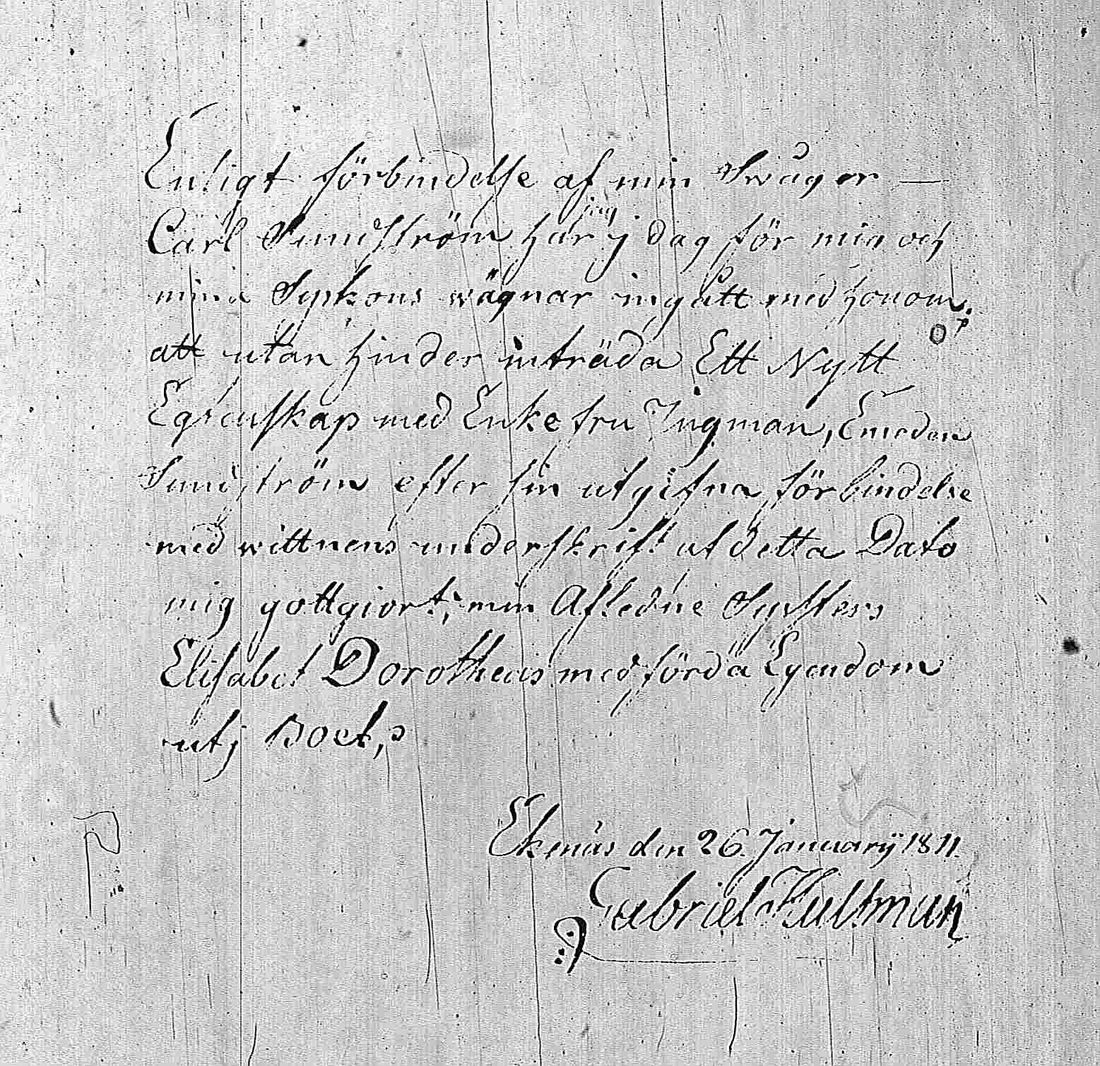 Enligt förbindelse af min Swåger —
Carl Sundström har jag j dag för min och
mina Syskons wägnar ingått med honom
att utan hinder inträda Ett Nytt
Egtenskap med Enke fru Ingman, Emedan
Sundström efter sin utgifna förbindelse
med wittnens underskrift af detta Dato
mig gottgiort, min Afledne Systers
Elisabet Dorotheas medförda Egendom
utj Boet,
Ekenäs den 26. January 1811.
Gabriel Hultman